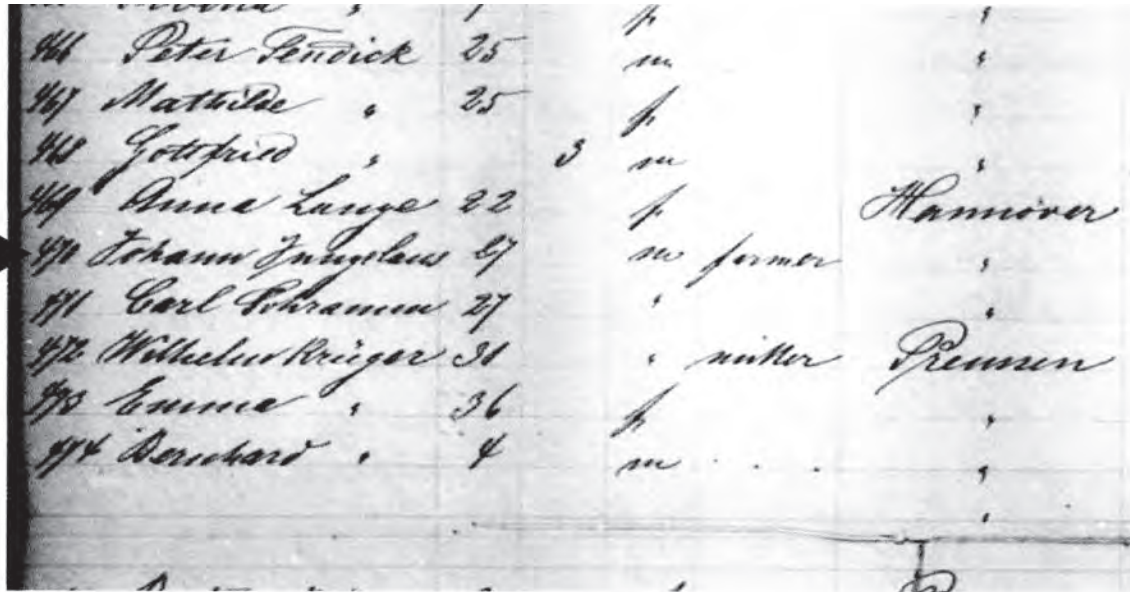 466 Peter Fendick 25 m "
467 Mathilde " 25 f "
468 Gottfried " 3 m "
469 Anna Lange 22 f Hannover
470 Johann Jungclaus 27 m farmer "
471 Carl Schramm 27 " "
472 Wilhelm Krüger 31 " miller Preussen
473 Emma " 36 f "
474 Bernhard " 4 m . . . "
"